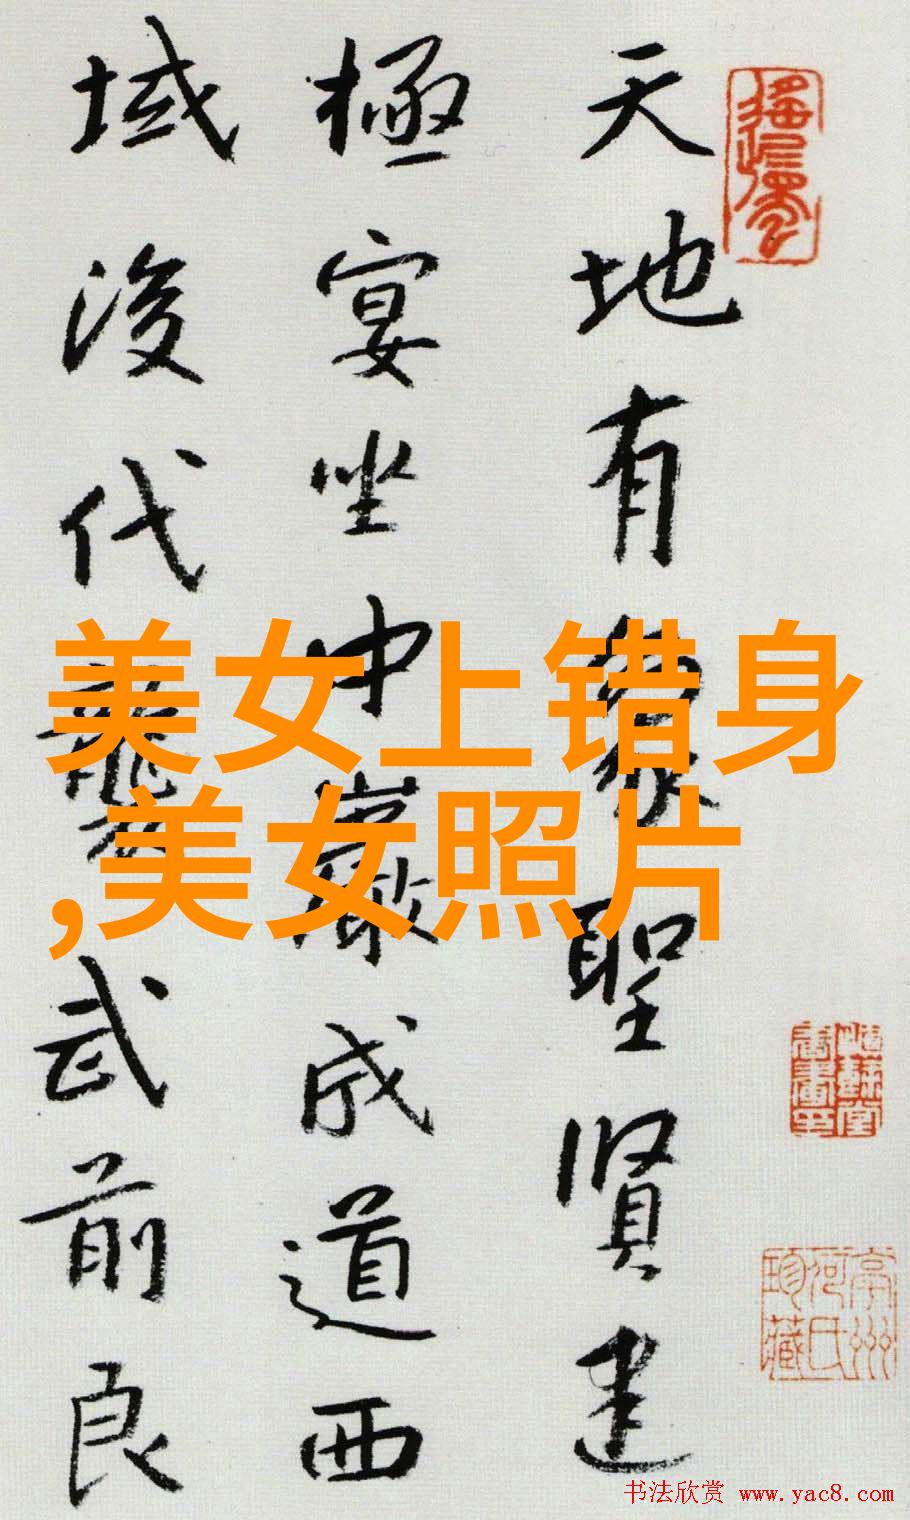 天地有象聖賢建
極宴坐中嶽成道西
域後代龔武前良
美女上错身
,美女照片
亭州
何氏
珍藏
书法欣赏 www.yac8.com